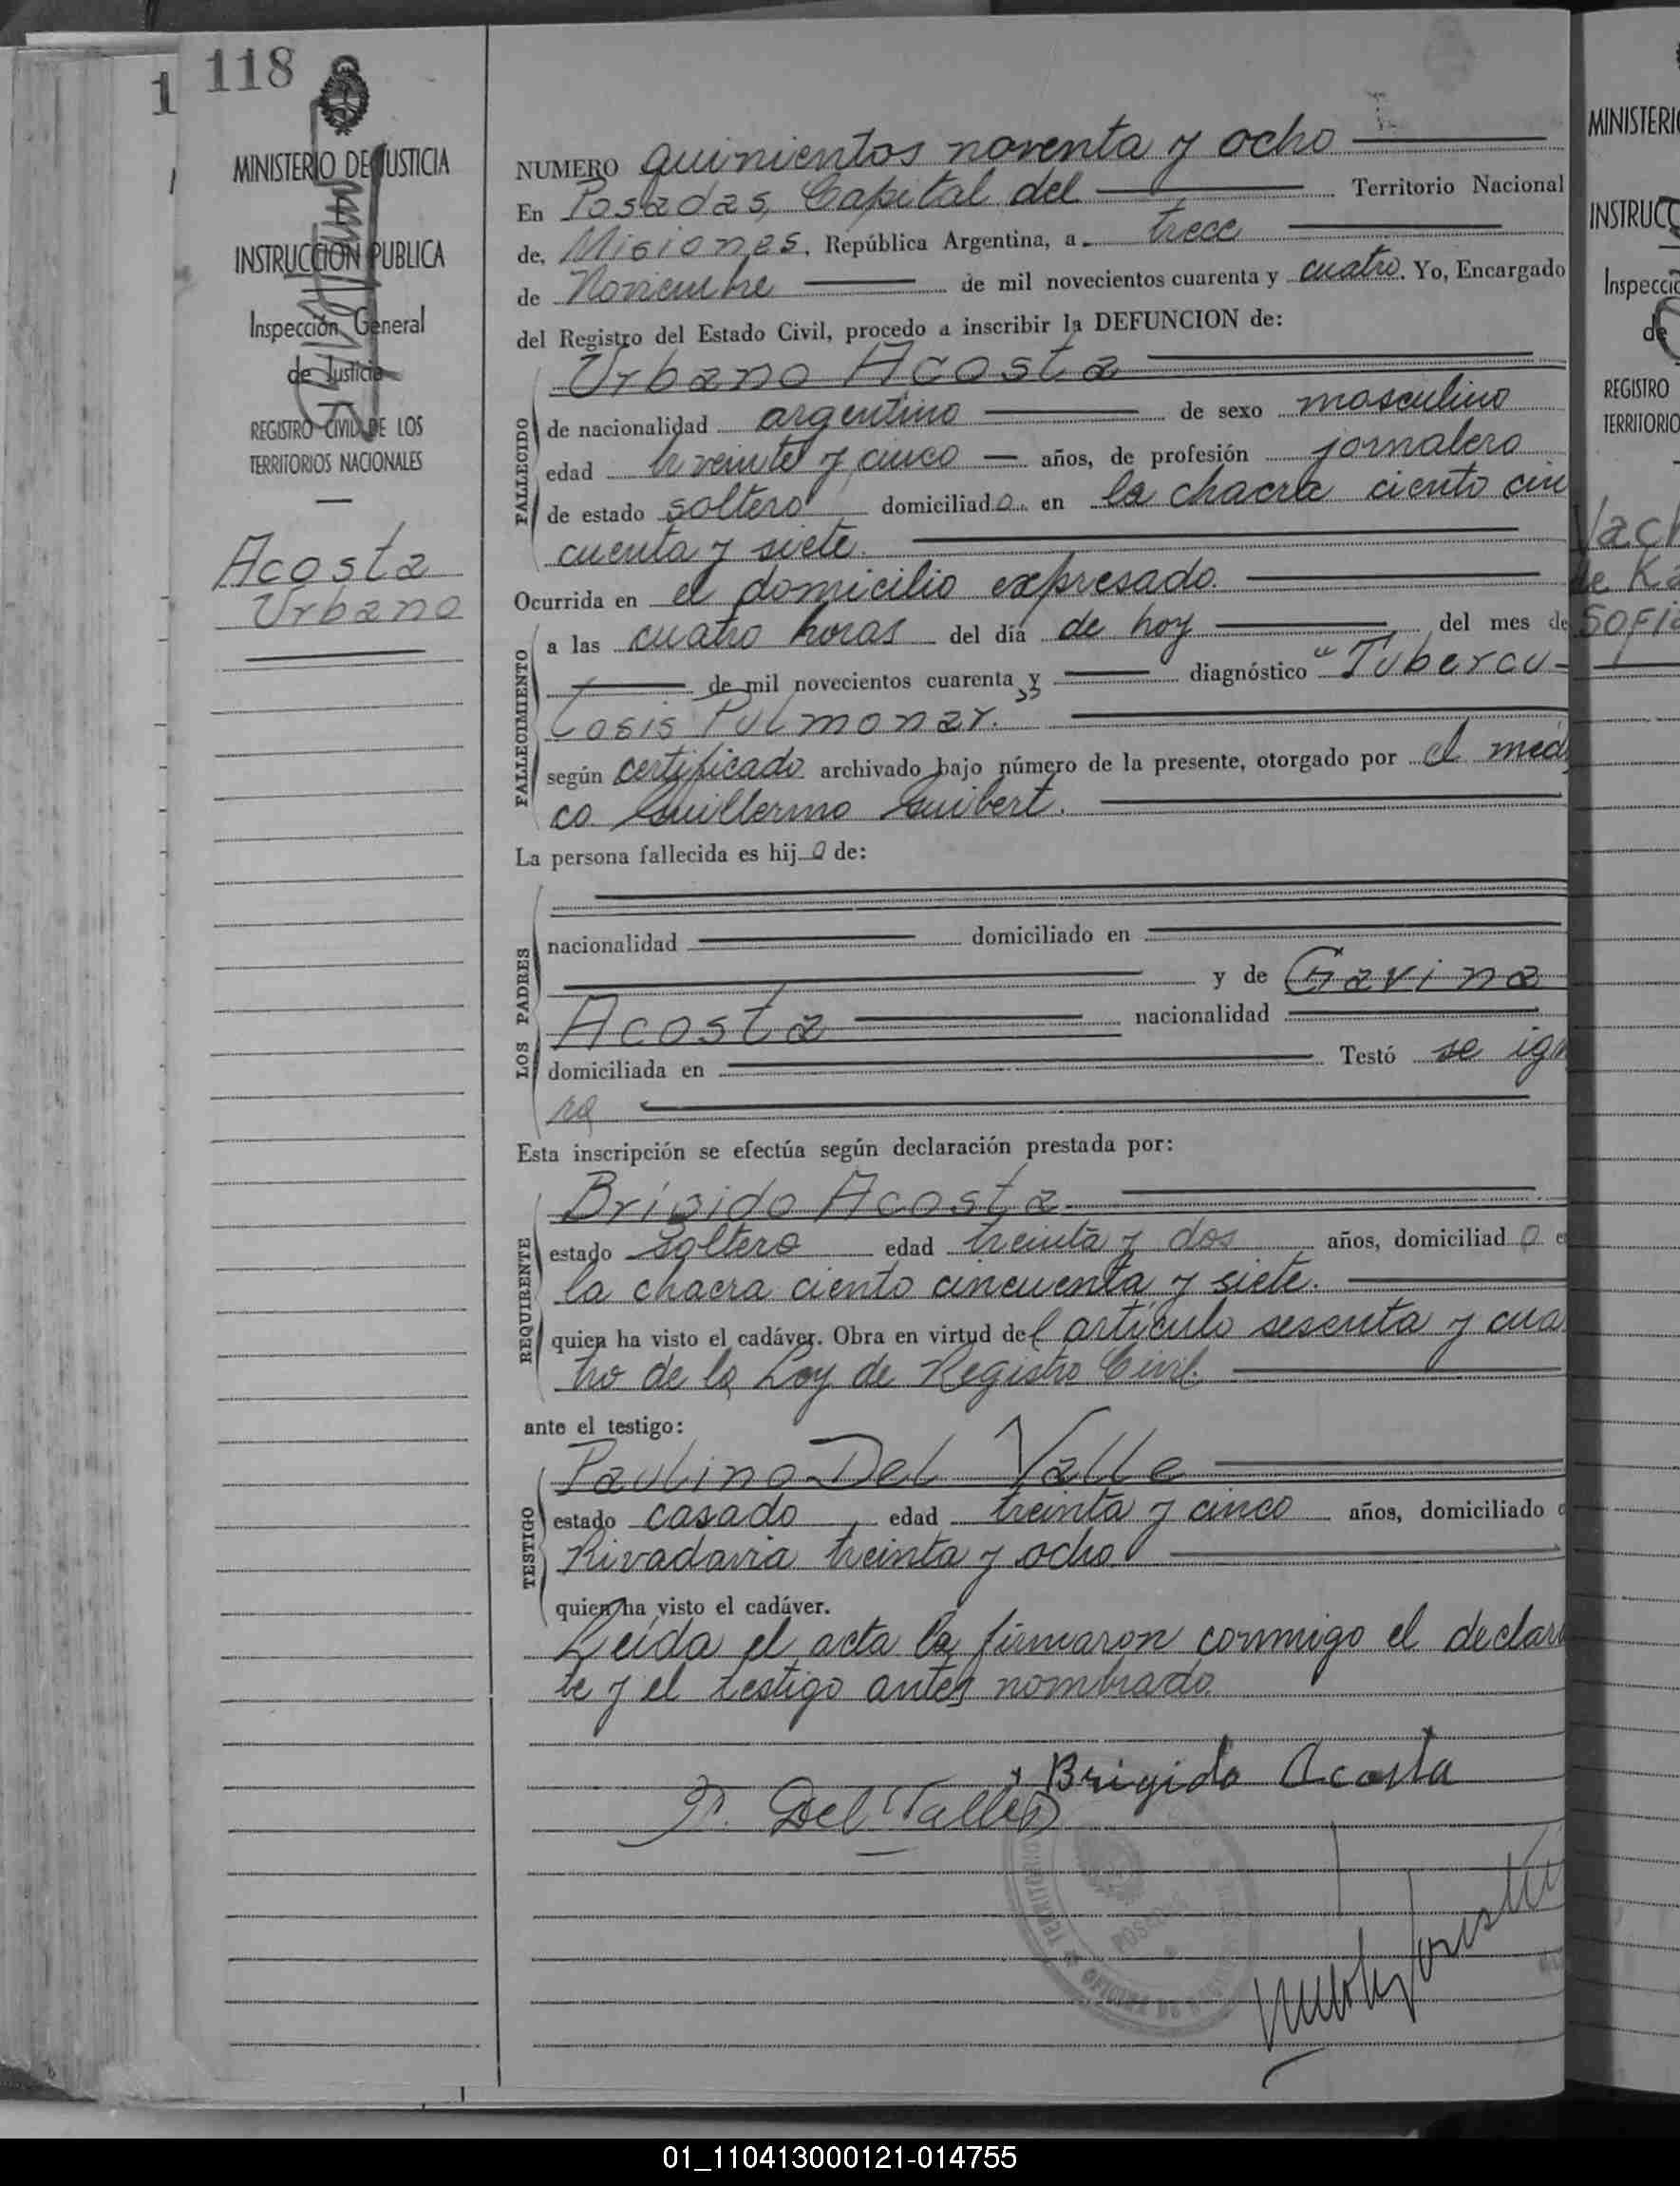 118
1
MINISTERIO DE JUSTICIA
INSTRUCCION PUBLICA
Inspección General
de Justicia
REGISTRO CIVIL DE LOS
TERRITORIOS NACIONALES
Acosta
Urbano
NUMERO quinientos noventa y ocho
En Posadas, Capital del Territorio Nacional
de, Misiones, República Argentina, a trece
de Noviembre de mil novecientos cuarenta y cuatro. Yo, Encargado
del Registro del Estado Civil, procedo a inscribir la DEFUNCION de:
Urbano Acosta
FALLECIDO
de nacionalidad argentino de sexo masculino
edad veinte y cinco años, de profesión jornalero
de estado soltero domiciliado en la chacra ciento cin
cuenta y siete.
Ocurrida en el domicilio expresado.
FALLECIMIENTO
a las cuatro horas del día de hoy del mes de
de mil novecientos cuarenta y diagnóstico "Tubercu-
losis Pulmonar."
según certificado archivado bajo número de la presente, otorgado por el médi
co Guillermo Guibert.
La persona fallecida es hijo de:
LOS PADRES
nacionalidad domiciliado en
y de Gavina
Acosta nacionalidad
domiciliada en Testó se ign
ra
Esta inscripción se efectúa según declaración prestada por:
REQUIRENTE
Brígido Acosta
estado soltero edad treinta y dos años, domiciliado e
la chacra ciento cincuenta y siete.
quien ha visto el cadáver. Obra en virtud del artículo sesenta y cua
tro de la Ley de Registro Civil.
ante el testigo:
TESTIGO
Paulino Del Valle
estado casado edad treinta y cinco años, domiciliado e
Rivadavia treinta y ocho
quien ha visto el cadáver.
Leída el acta la firmaron conmigo el declaran
te y el testigo antes nombrado.
Brigido Acosta
P. Del Valle
POSADAS
MINISTERI
INSTRUCC
Inspecció
de
REGISTRO
TERRITORIO
de Ka
Sofia
01_110413000121-014755